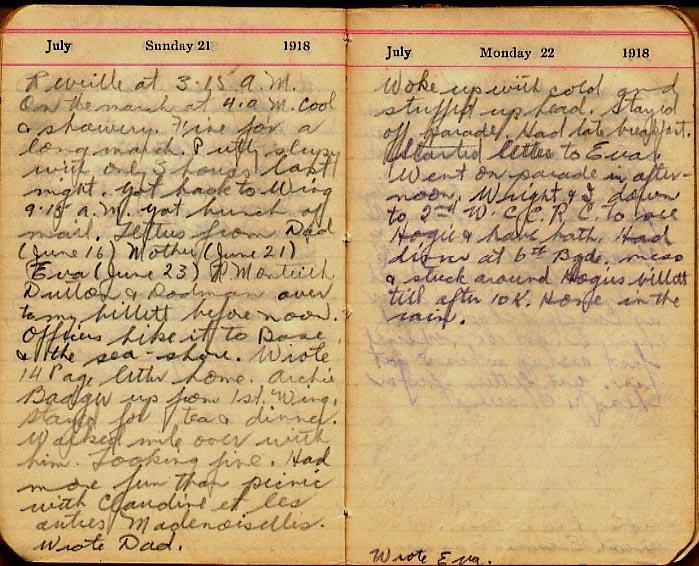 July Sunday 21 1918
Reveille at 3.15 A.M.
On the march at 4.a.M. Cool
& showery. Fine for a
long march. Pretty sleepy
with only 3 hours last
night. Got back to Wing
9.15 a.M. Got bunch of
mail. Letters from Dad
(June 16) Mother (June 21)
Eva (June 23) Monteith
Dutton & Rodman over
to my billett before noon.
Officers hike it to Base
& the sea-shore. Wrote
14 Page letter home. Archie
Badger up from 1st. Wing.
Stayed for tea & dinner.
Walked mile over with
him. Looking fine. Had
more fun than picnic
with Claudine et les
autres Madenoiselles.
Wrote Dad.
July Monday 22 1918
Woke up with cold and
stuffed up head. Stayed
off parade. Had late breakfast.
Started letter to Eva.
Went on parade in after-
noon. Wright & I down
to 2nd W.C.C.R.C. to see
Hogie & have bath. Had
dinner at 6th Bgde. mess
& stuck around Hogies billett
till after 10 K. Home in the
rain.
Wrote Eva.